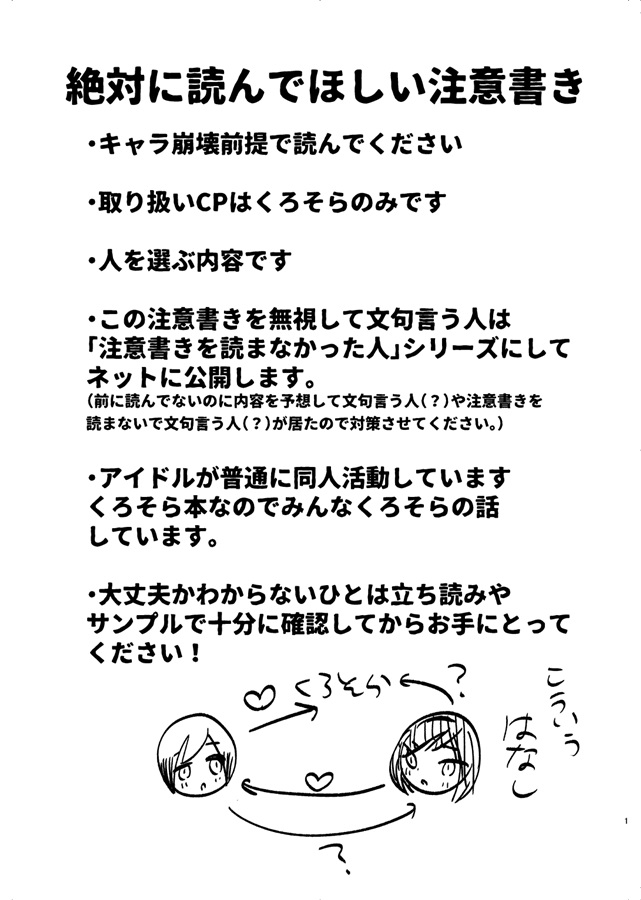 絶対に読んでほしい注意書き
・キャラ崩壊前提で読んでください
・取り扱いCPはくろそらのみです
・人を選ぶ内容です
・この注意書きを無視して文句言う人は
「注意書きを読まなかった人」シリーズにして
ネットに公開します。
（前に読んでないのに内容を予想して文句言う人（？）や注意書きを
読まないで文句言う人（？）が居たので対策させてください。）
・アイドルが普通に同人活動しています
くろそら本なのでみんなくろそらの話
しています。
・大丈夫かわからないひとは立ち読みや
サンプルで十分に確認してからお手にとって
ください！
くろそら
？
こういう
はなし
？
1